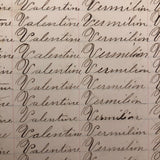 Valentine Vermilion
Valentine Vermilion
Valentine Vermilion
Valentine Vermilion
Valentine Vermilion
Valentine Vermilion
Valentine Vermilion
Valentine Vermilion
Valentine Vermilion